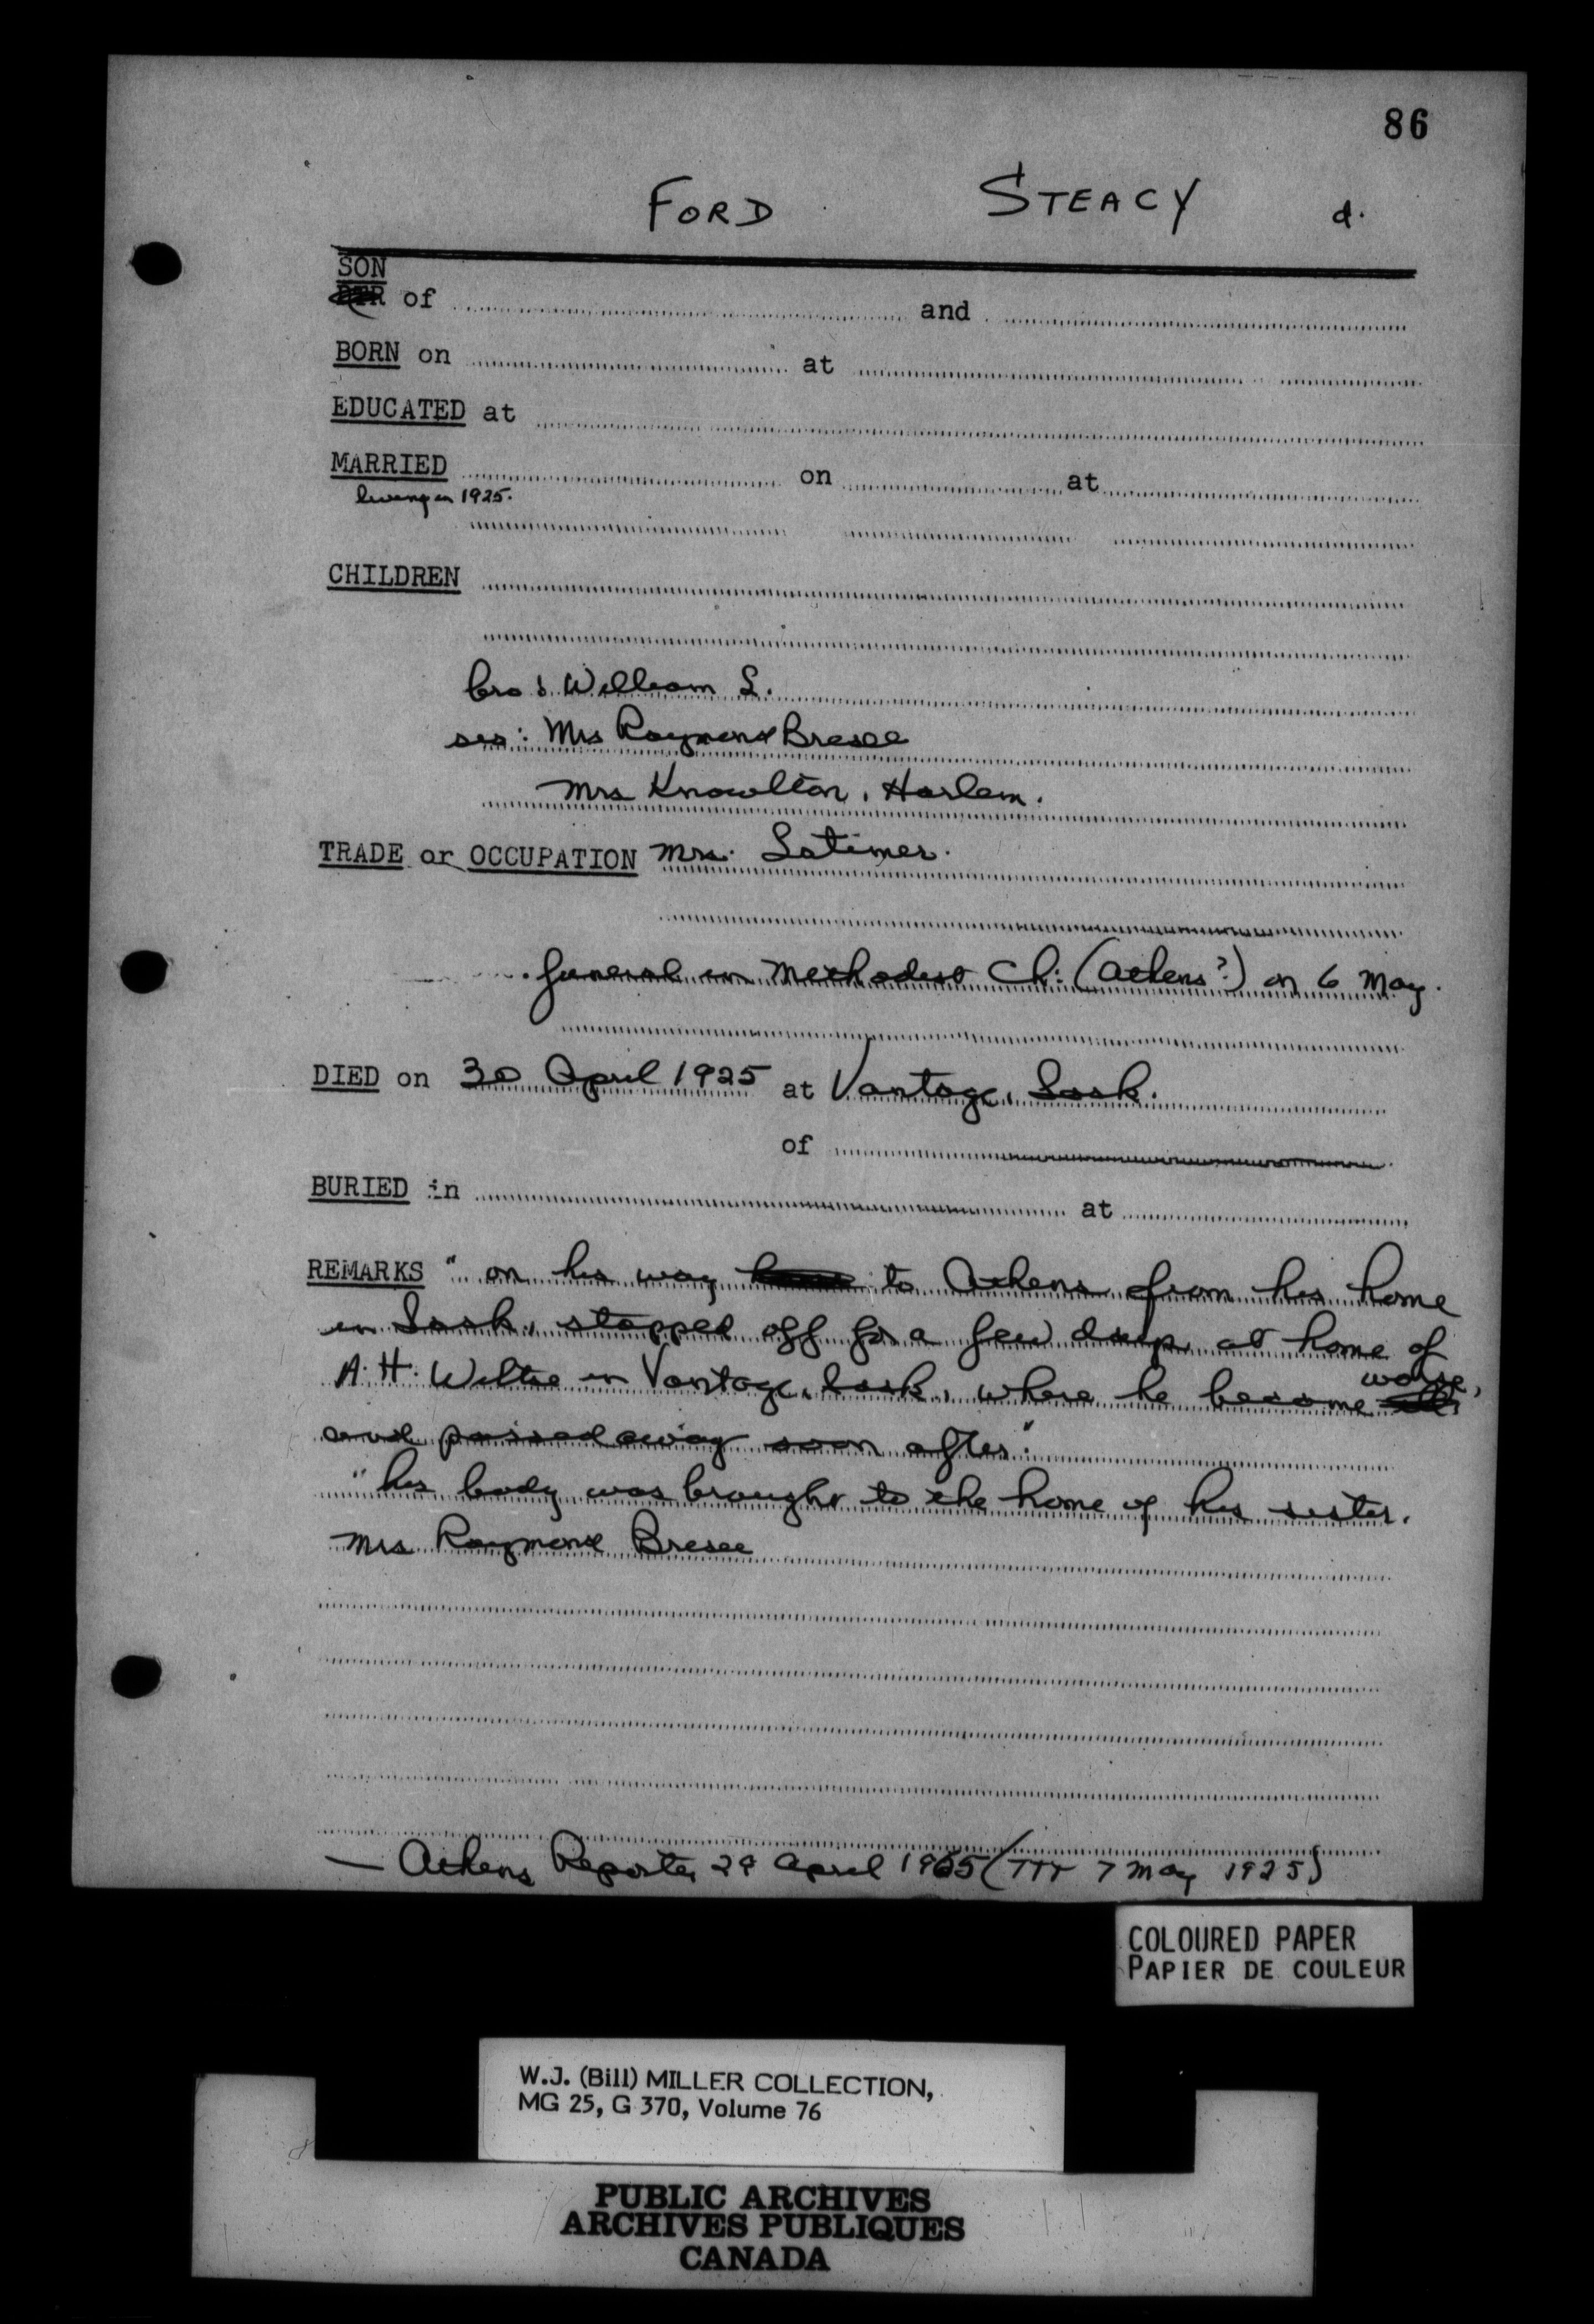 86
FORD STEACY d.
SON
DTR of and
BORN on at
EDUCATED at
MARRIED on at
living in 1925.
CHILDREN
bro: William S.
sis: Mrs Raymond Bresee
Mrs Knowlton, Harlem.
TRADE or OCCUPATION Mrs. Latimer.
funeral in Methodist Ch: (Athens?) on 6 May.
DIED on 30 April 1925 at Vantage, Sask.
of
BURIED in at
REMARKS "on his way to Athens from his home
in Sask, stopped off for a few days, at home of
A.H. Wiltse in Vantage, Sask, where he became worse,
and passed away soon after."
"his body was brought to the home of his sister,
Mrs Raymond Bresee
— Athens Reporter 29 April 1965 (TTT 7 May 1925)
COLOURED PAPER
PAPIER DE COULEUR
W.J. (Bill) MILLER COLLECTION,
MG 25, G 370, Volume 76
PUBLIC ARCHIVES
ARCHIVES PUBLIQUES
CANADA